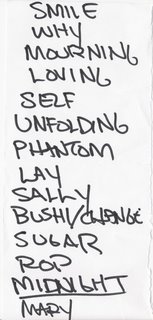 SMILE
WHY
MOURNING
LOVING
SELF
UNFOLDING
PHANTOM
LAY
SALLY
BUSH/CHANGE
SUGAR
ROP
MIDNIGHT
MARY